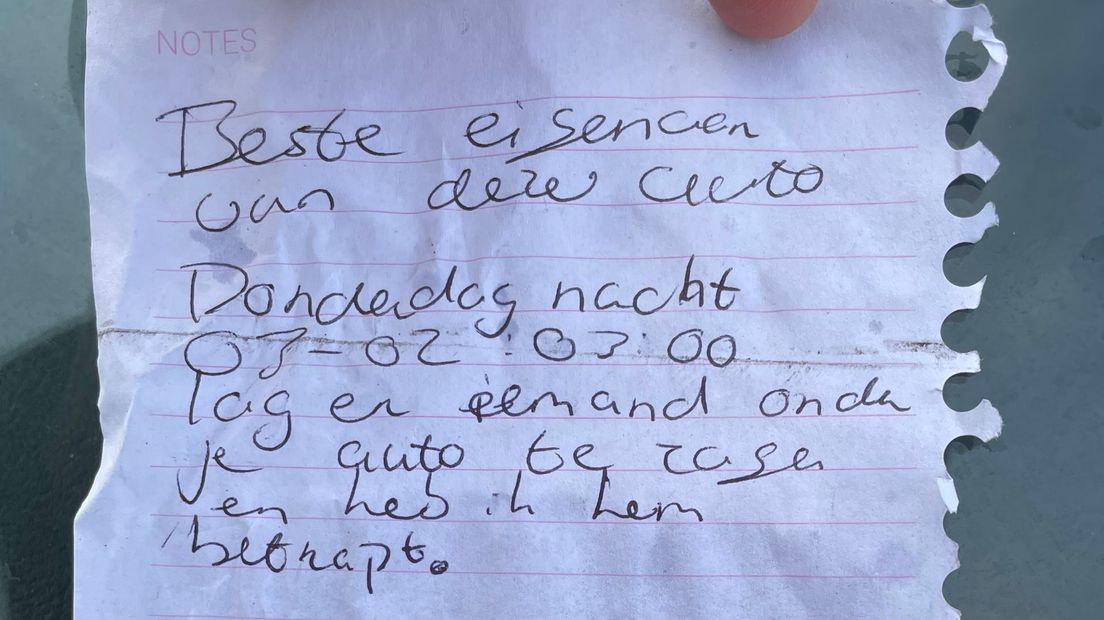 NOTES
Beste eigenaar
van deze auto
Donderdag nacht
03-02 : 03:00
lag er iemand onder
je auto te zagen
en heb ik hem
betrapt.